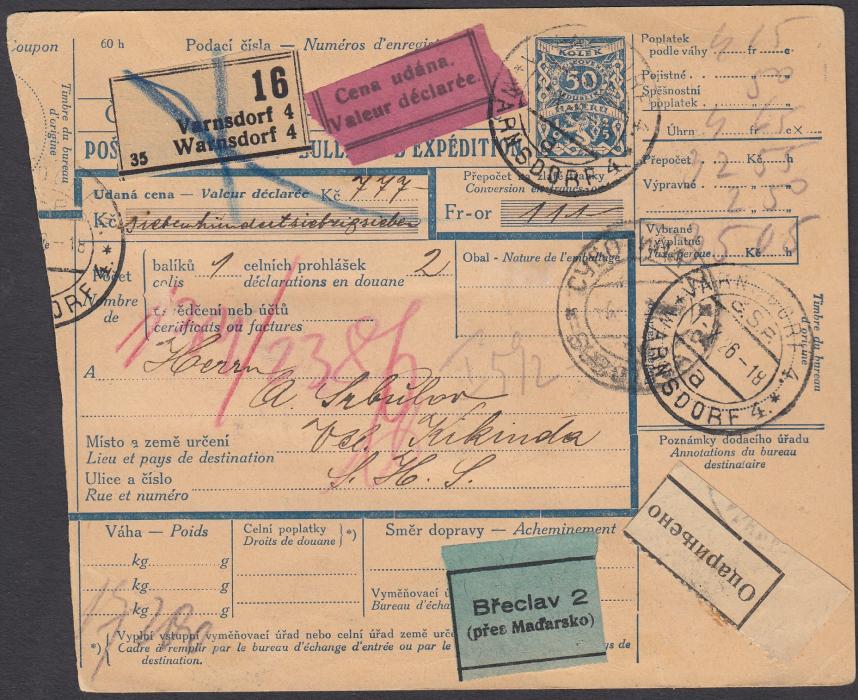 Coupon
60 h
Podací čísla — Numéros d'enregi
16
Varnsdorf 4
Warnsdorf 4
35
Cena udána.
Valeur déclarée.
KOLEK
50
POŠ
BULLE
D'EXPÉDITI
VARNSDORF 4.
WARNSDORF 4.
Timbre du bureau
d'origine
Udaná cena — Valeur déclarée Kč 777-
Kč siebenhundertsiebzigsieben
Přepočet na zlaté franky
Conversion en francs-or
Fr-or 111-
Poplatek
podle váhy fr c
Pojistné
50
Spěšnostní
poplatek
Úhrn fr c
Přepočet Kč h
Výpravné
2 50
Vybrané
výplatné
Taxe perçue Kč h
Počet
Nombre
de
balíků 1
colis
celních prohlášek 2
déclarations en douane
osvědčení neb účtů
certificats ou factures
Obal - Nature de l'emballage
A
Herrn
A. Srbulov
Vel. Kikinda
S. H. S.
Místo a země určení
Lieu et pays de destination
Ulice a číslo
Rue et numéro
VARNSDORF 4.
WARNSDORF 4.
Timbre du bureau
d'origine
Poznámky dodacího úřadu
Annotations du bureau
destinataire
Váha — Poids
kg g
kg g
kg g
Celní poplatky
Droits de douane
*)
Směr dopravy — Acheminement
Vyměňovací ú
Bureau d'écha
Břeclav 2
(přes Maďarsko)
Оцарињено
*) Vyplní vstupní vyměňovací úřad nebo celní úřad země urče
Cadre à remplir par le bureau d'échange d'entrée ou par le
ys de
destination.